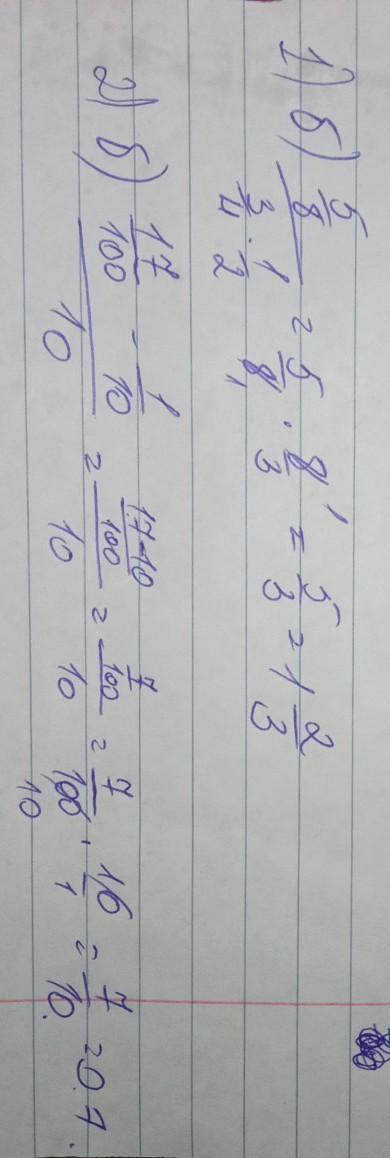 1) б) (5/8)/(3/4 · 1/2) = 5/8 · 8/3 = 5/3 = 1 2/3
2) б) (17/100 - 1/10)/10 = ((17-10)/100)/10 = (7/100)/10 = 7/100 · 10/1 = 7/10 = 0.7